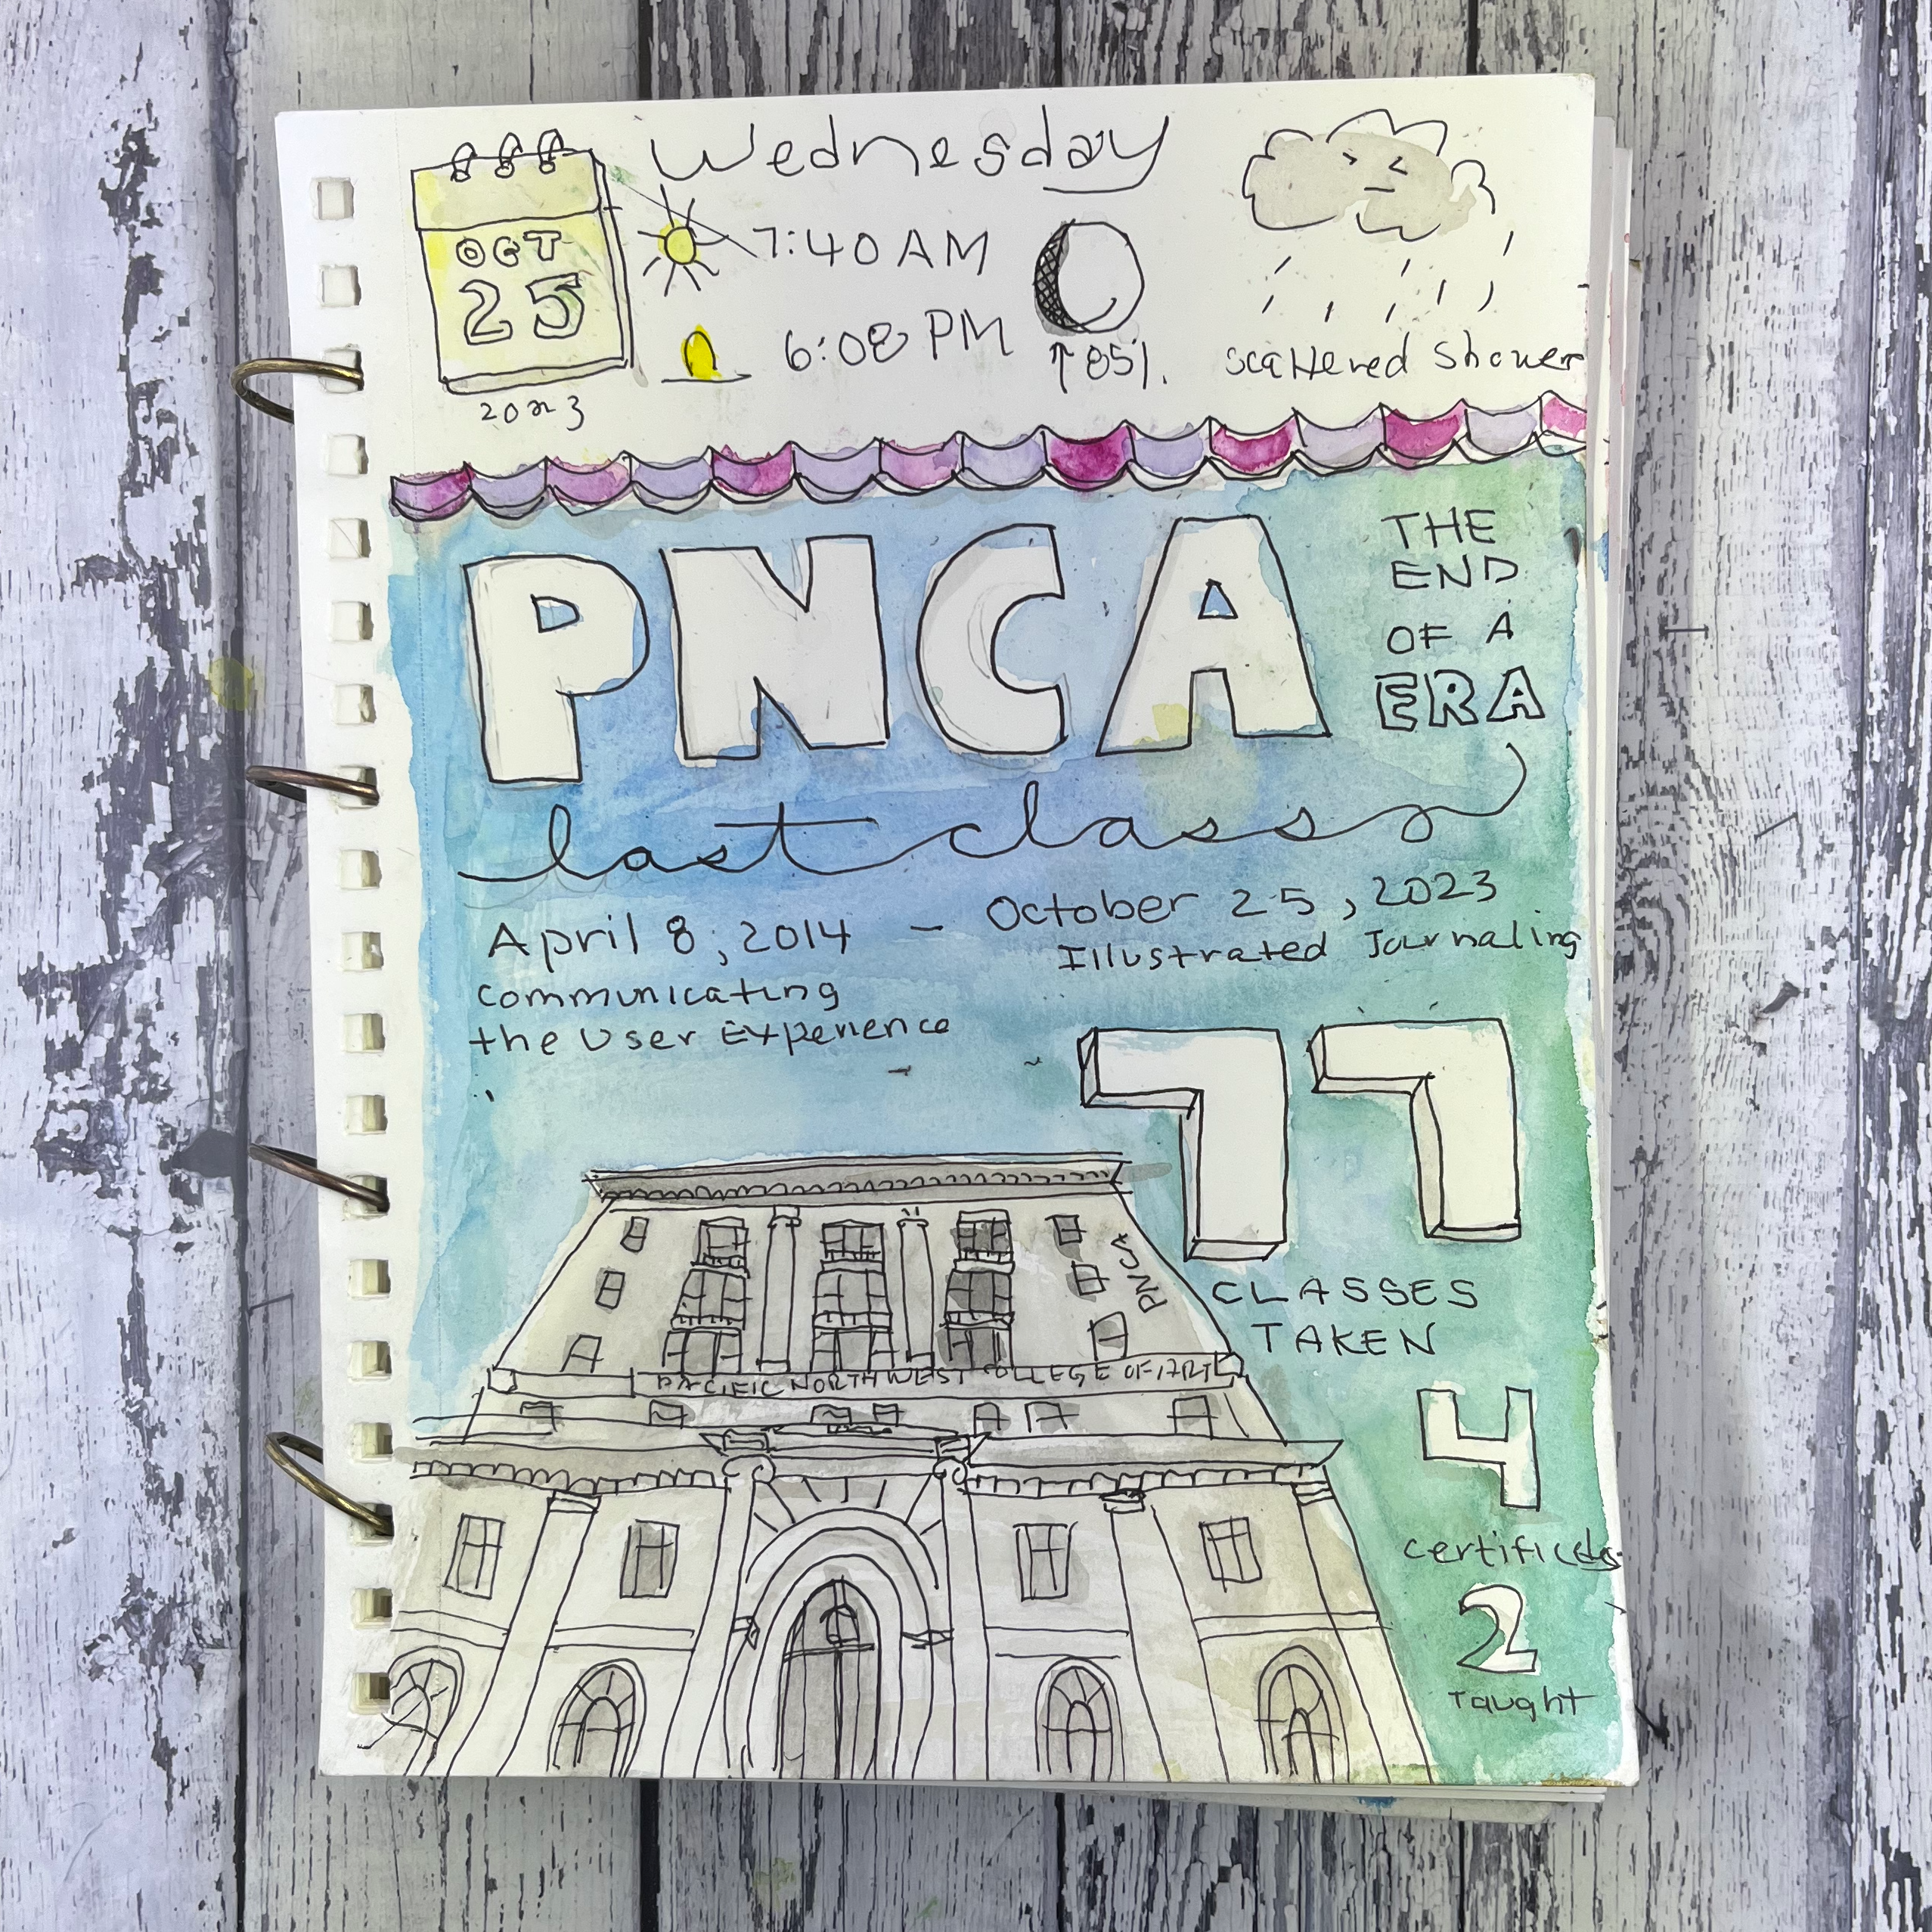 Wednesday
OCT
25
2023
7:40 AM
6:08 PM
↑85%
Scattered Shower
PNCA
THE
END
OF A
ERA
last class
April 8, 2014 - October 25, 2023
Illustrated Journaling
Communicating
the User Experience
77
CLASSES
TAKEN
4
Certificates
2
Taught
PNCA
PACIFIC NORTHWEST COLLEGE OF ART